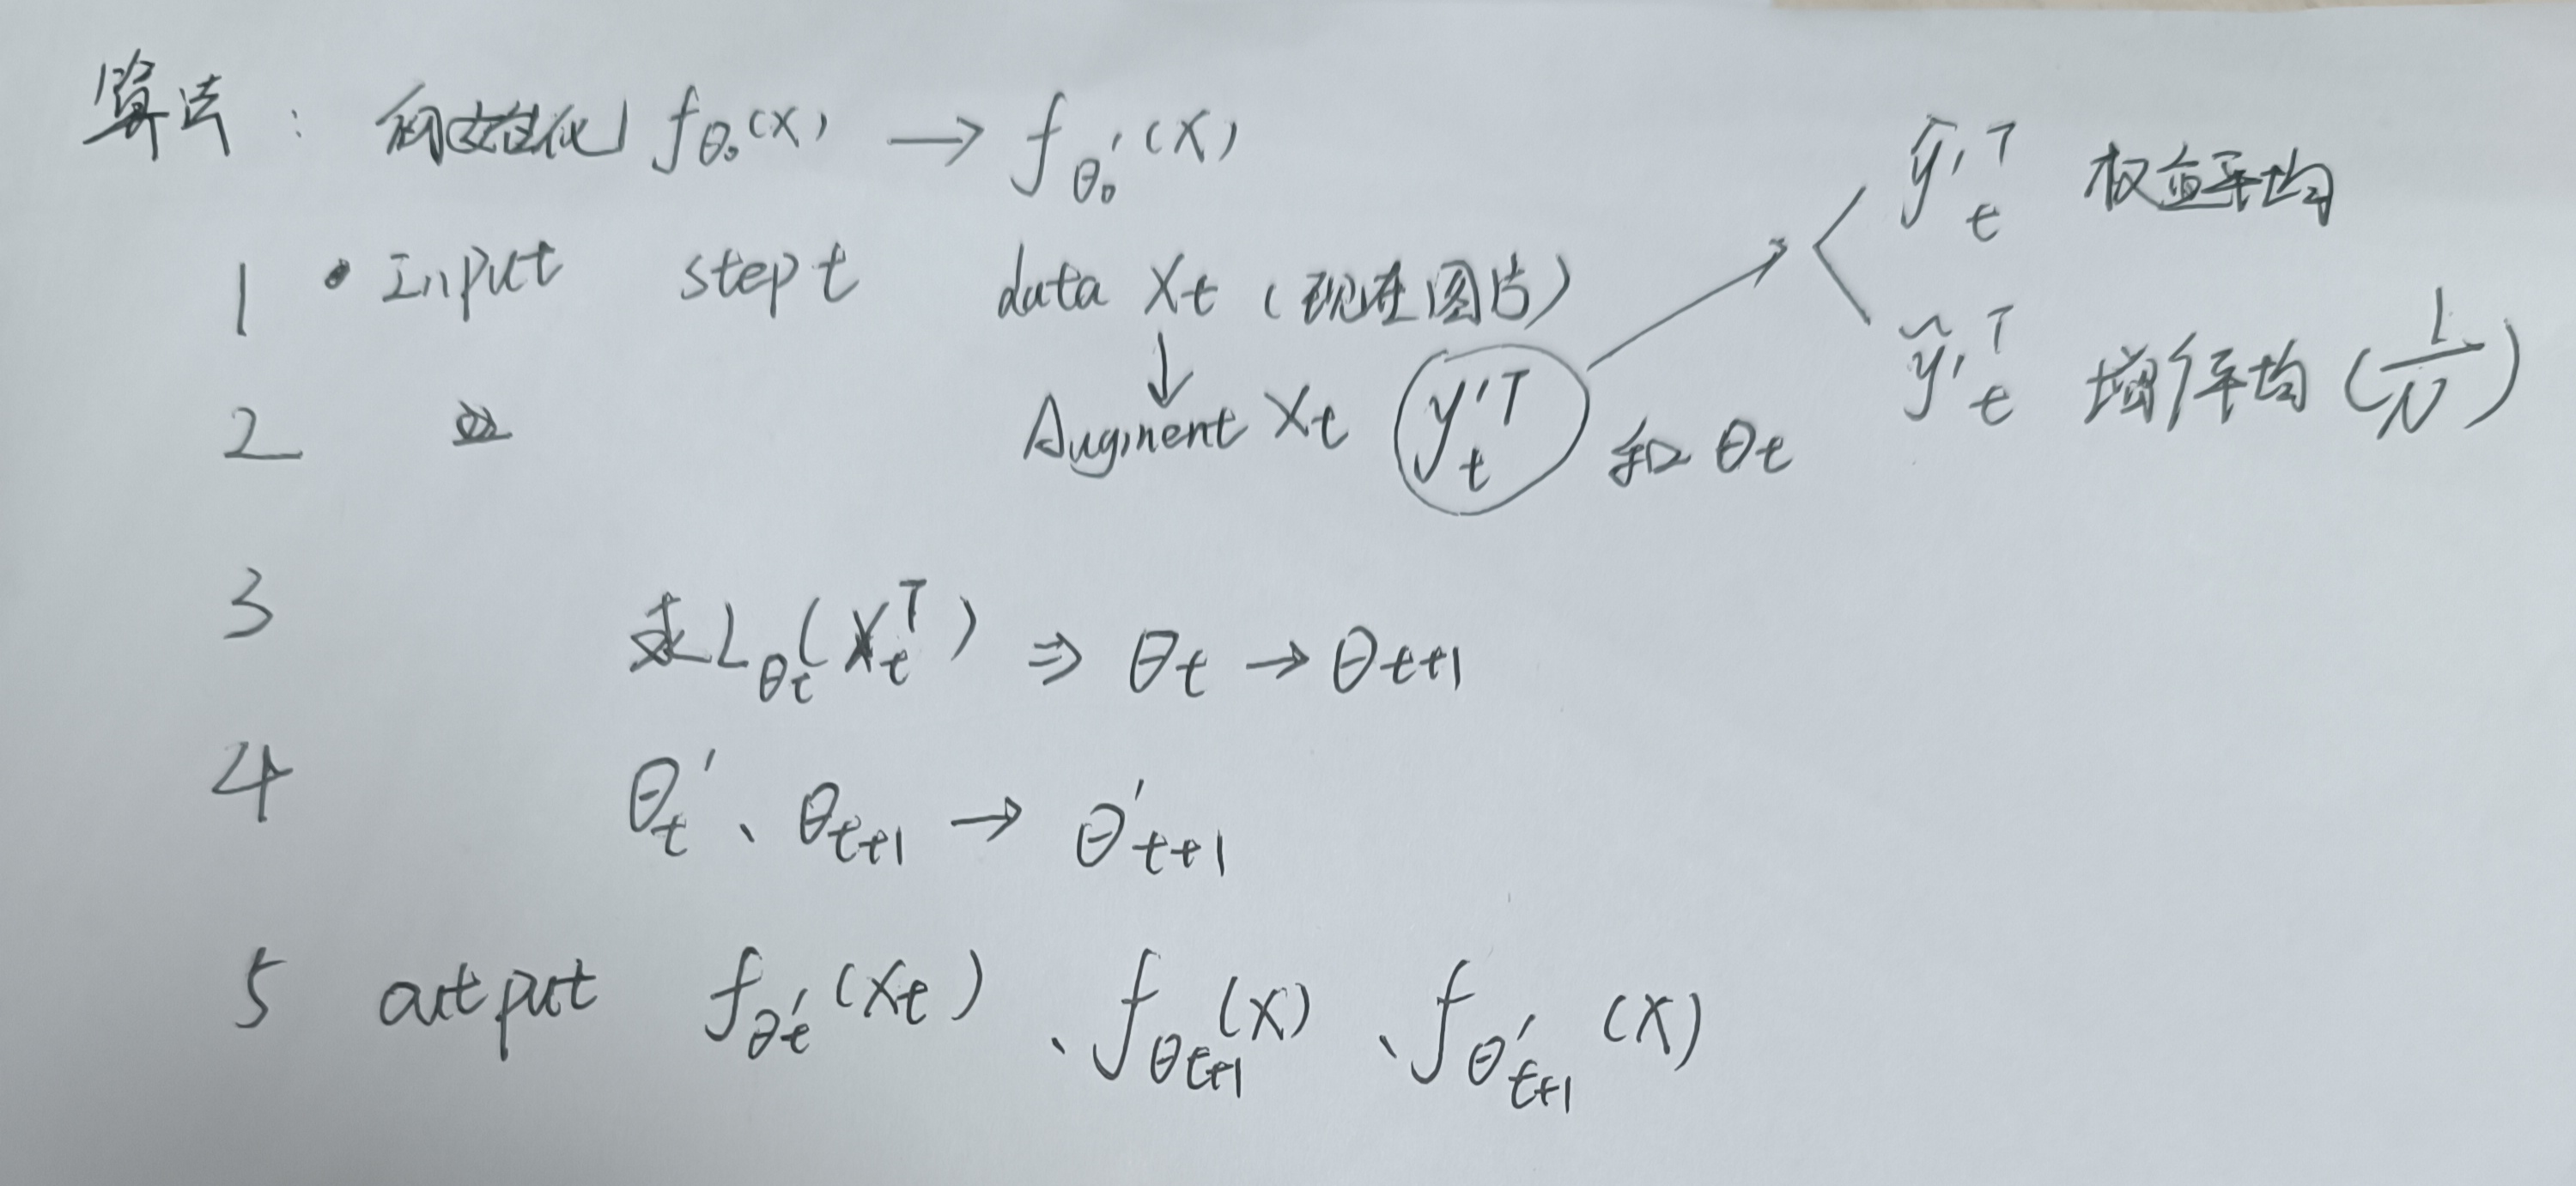 算法: 初始化 fθ₀(x) → fθ₀'(x)
1 • Input step t data Xt (现在图片)
2 Augment Xt y't^T 和 θt
ŷ't^T 权重平均
ỹ't^T 增广平均 (1/N)
3 求Lθt(Xt^T) ⇒ θt → θt+1
4 θt'、θt+1 → θ't+1
5 output fθ't(Xt)、fθt+1(X)、fθ't+1(X)